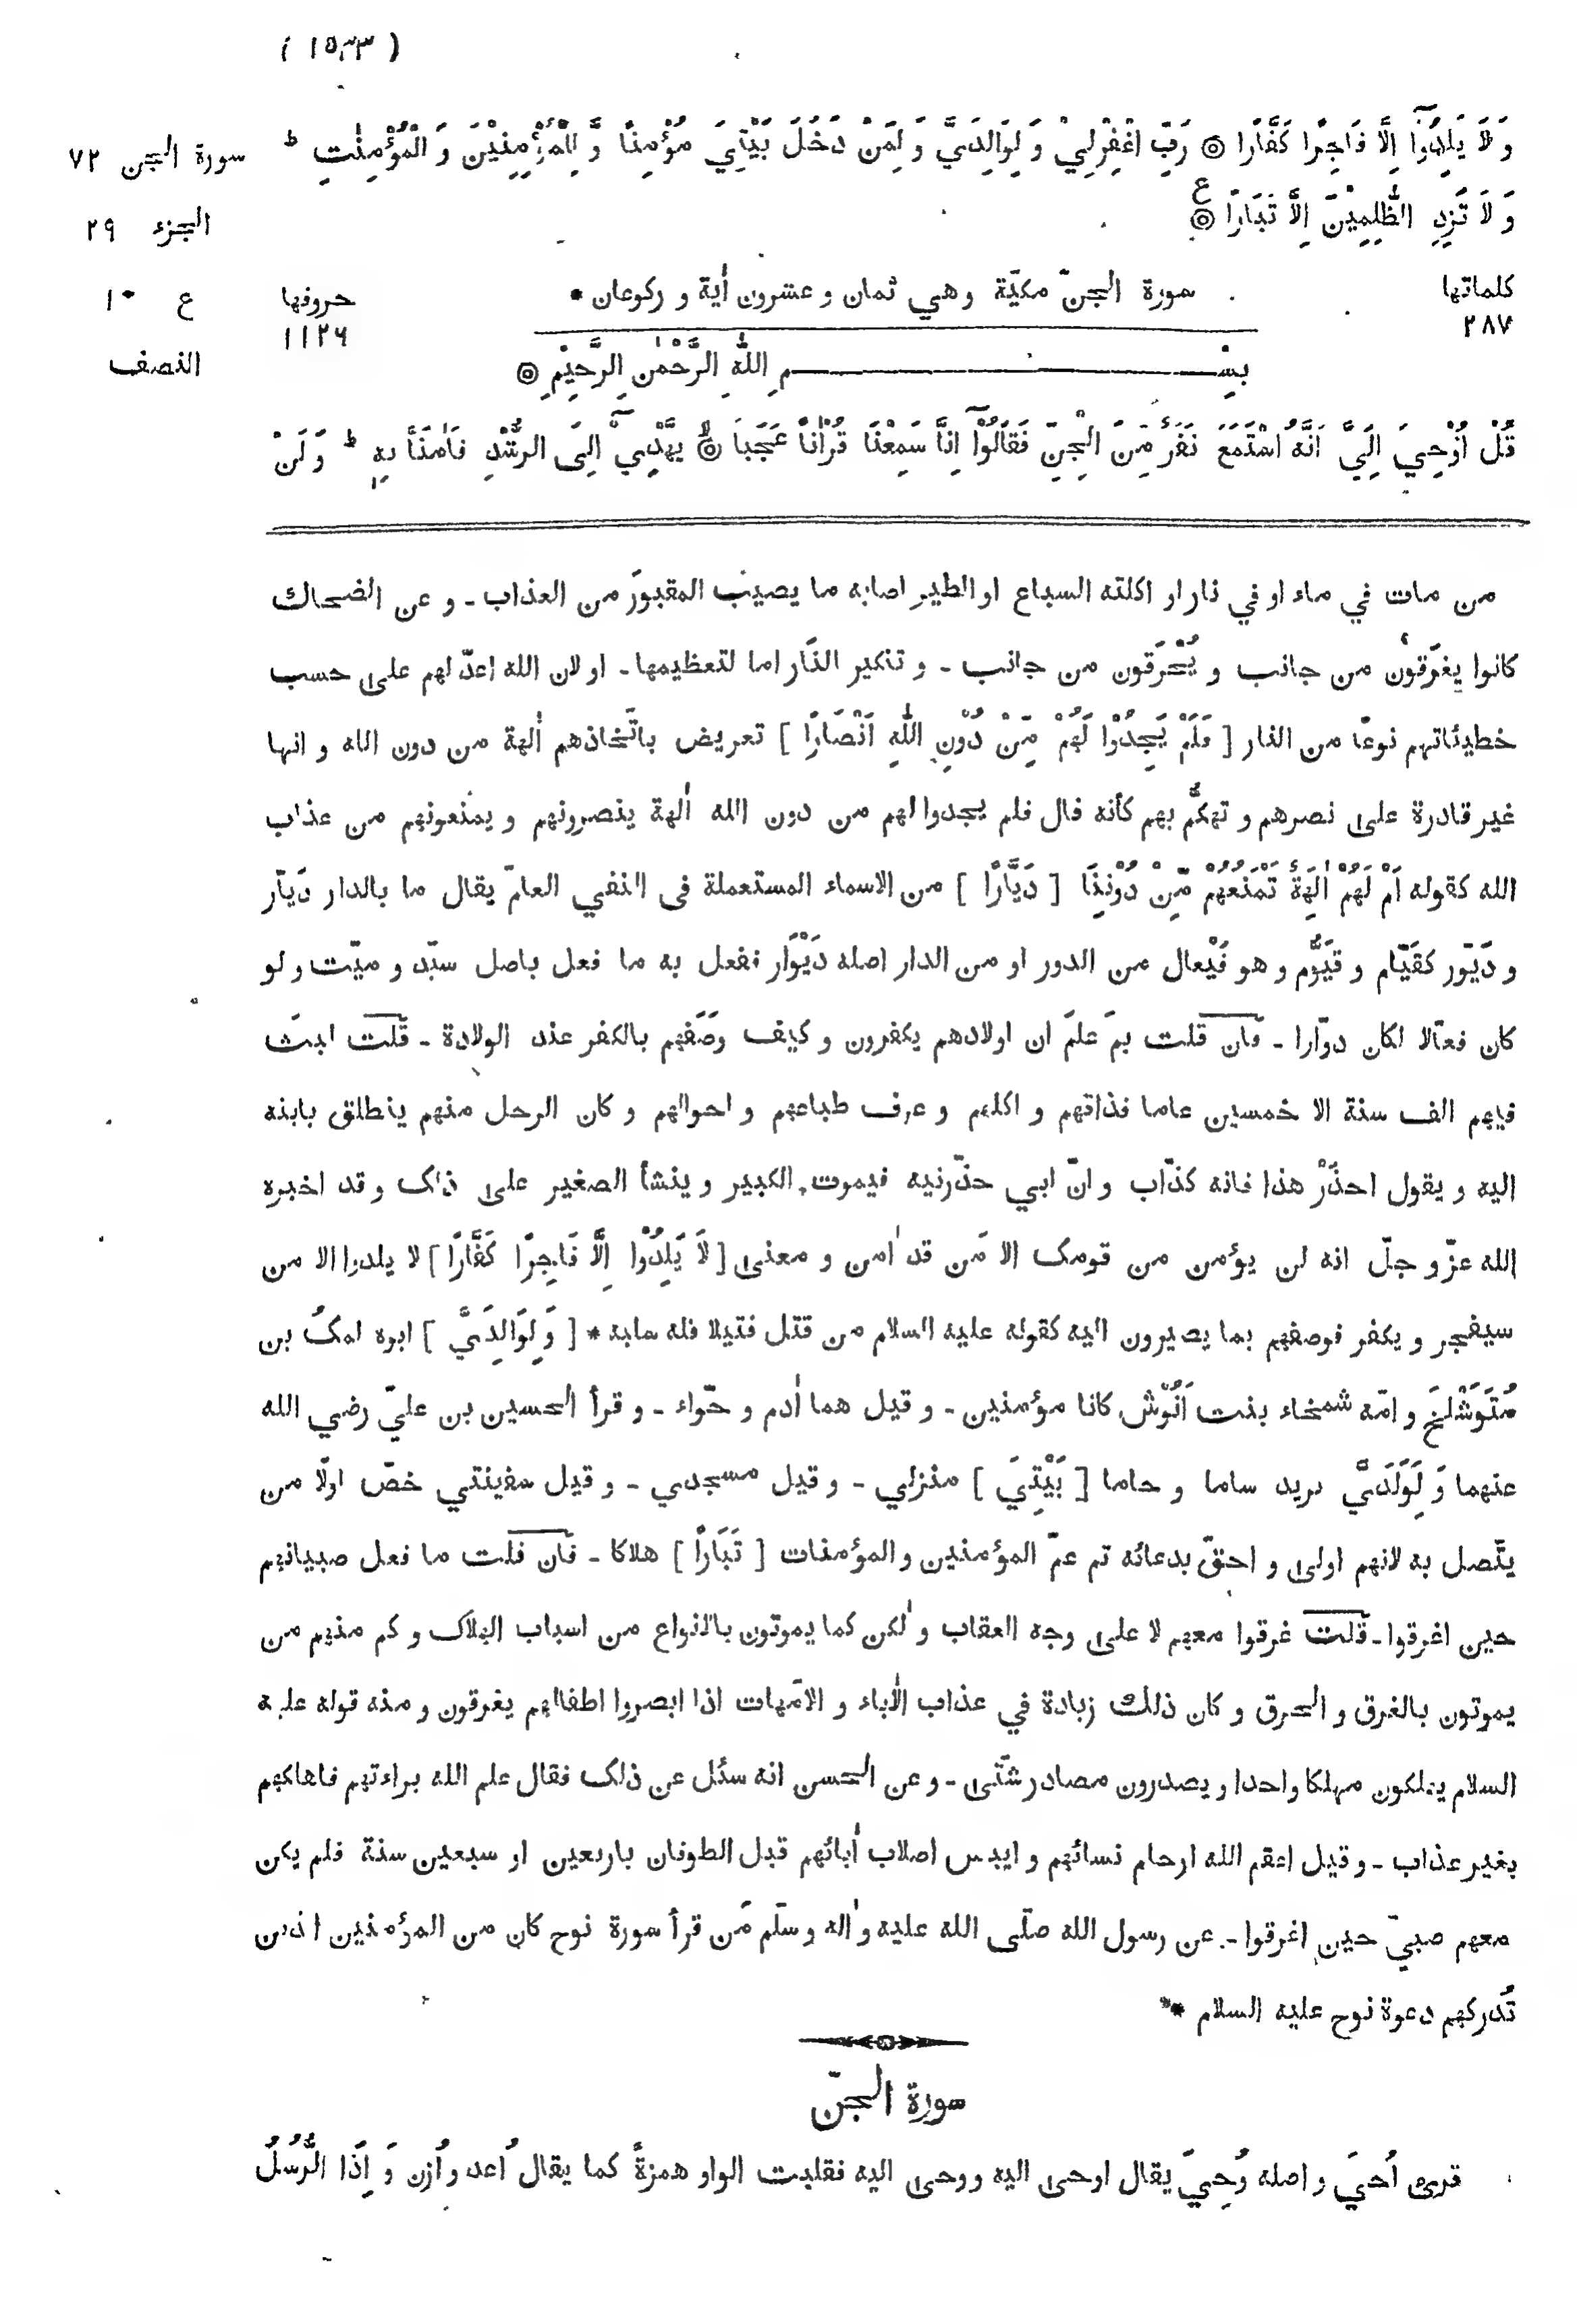 ( ١٥٣٣ )
وَ لَا يَلِدُوْٓا اِلَّا فَاجِرًا كَفَّارًا ۞ رَبِّ اغْفِرْلِيْ وَ لِوَالِدَيَّ وَ لِمَنْ دَخَلَ بَيْتِيَ مُؤْمِنًا وَّ لِلْمُؤْمِنِيْنَ وَ الْمُؤْمِنٰتِ ط
سورة الجن ٧٢
وَ لَا تَزِدِ الظّٰلِمِيْنَ اِلَّا تَبَارًا ۞ ع
الجزء ٢٩
كلماتها
٢٨٧
سورة الجنّ مكيّة وهي ثمان و عشرون اٰية و ركوعان *
حروفها
١١٢٦
ع ١٠
بِسْمِ اللّٰهِ الرَّحْمٰنِ الرَّحِيْمِ ۞
النصف
قُلْ اُوْحِيَ اِلَيَّ اَنَّهُ اسْتَمَعَ نَفَرٌ مِّنَ الْجِنِّ فَقَالُوْٓا اِنَّا سَمِعْنَا قُرْاٰنًا عَجَبًا ۞ يَّهْدِيْٓ اِلَى الرُّشْدِ فَاٰمَنَّا بِهٖ ط وَ لَنْ
من مات في ماء او في نار او اكلته السباع او الطير اصابه ما يصيب المقبور من العذاب ـ و عن الضحاك
كانوا يغرَقون من جانب و يُحْرَقون من جانب ـ و تنكير النار اما لتعظيمها ـ او لان الله اعدّ لهم على حسب
خطيئاتهم نوعًا من النار [ فَلَمْ يَجِدُوْا لَهُمْ مِّنْ دُوْنِ اللّٰهِ اَنْصَارًا ] تعريض باتّخاذهم اٰلهة من دون الله و انها
غير قادرة على نصرهم و تهكُّم بهم كأنه قال فلم يجدوا لهم من دون الله اٰلهة ينصرونهم و يمنعونهم من عذاب
الله كقوله اَمْ لَهُمْ اٰلِهَةٌ تَمْنَعُهُمْ مِّنْ دُوْنِنَا [ دَيَّارًا ] من الاسماء المستعملة فى النفي العامّ يقال ما بالدار دَيّار
و دَيّور كقَيّام و قَيّوم و هو فَيْعال من الدور او من الدار اصله دَيْوَار ففعل به ما فعل باصل سيّد و ميّت و لو
كان فعّالا لكان دوّارا ـ فان قلت بمَ علمَ ان اولادهم يكفرون و كيف وصَفهم بالكفر عند الولادة ـ قلت لبث
فيهم الف سنة الا خمسين عاما فذاقهم و اكلهم و عرف طباعهم و احوالهم و كان الرجل منهم ينطلق بابنه
اليه و يقول احذَرْ هذا فانه كذّاب و انّ ابي حذّرنيه فيموت الكبير و ينشأ الصغير على ذلك و قد اخبره
الله عزّ و جلّ انه لن يؤمن من قومك الا مَن قد اٰمن و معنى [ لَا يَلِدُوْا اِلَّا فَاجِرًا كَفَّارًا ] لا يلدوا الا من
سيفجر و يكفر فوصفهم بما يصيرون اليه كقوله عليه السلام من قتل قتيلا فله سلبه * [ وَ لِوَالِدَيَّ ] ابوه لمك بن
مُتَوَشْلِخَ و امّه شمخاء بنت اَنُوْش كانا مؤمنين ـ و قيل هما اٰدم و حوّاء ـ و قرأ الحسين بن عليّ رضي الله
عنهما وَ لِوَلَدَيَّ يريد ساما و حاما [ بَيْتِيَ ] منزلي ـ و قيل مسجدي ـ و قيل سفينتي خصّ اولًا من
يتّصل به لانهم اولى و احقّ بدعائه ثم عمّ المؤمنين و المؤمنات [ تَبَارًا ] هلاكا ـ فان قلت ما فعل صبيانهم
حين اغرقوا ـ قلت غرقوا معهم لا على وجه العقاب و لٰكن كما يموتون بالانواع من اسباب الهلاك و كم منهم من
يموتون بالغرق و الحرق و كان ذلك زيادة في عذاب الاٰباء و الامّهات اذا ابصروا اطفالهم يغرقون و منه قوله عليه
السلام يهلكون مهلكا واحدا و يصدرون مصادر شتّى ـ و عن الحسن انه سئل عن ذلك فقال علم الله براءتهم فاهلكهم
بغير عذاب ـ و قيل اعقم الله ارحام نسائهم و ايبس اصلاب اٰبائهم قبل الطوفان باربعين او سبعين سنة فلم يكن
معهم صبيّ حين اغرقوا ـ عن رسول الله صلّى الله عليه و اٰله و سلّم مَن قرأ سورة نوح كان من المؤمنين الذين
تُدركهم دعوة نوح عليه السلام **
سورة الجنّ
قرئ اُحيَ و اصله وُحِيَ يقال اوحى اليه و وحى اليه فقلبت الواو همزةً كما يقال اُعد و اُزن وَ اِذَا الرُّسُلُ